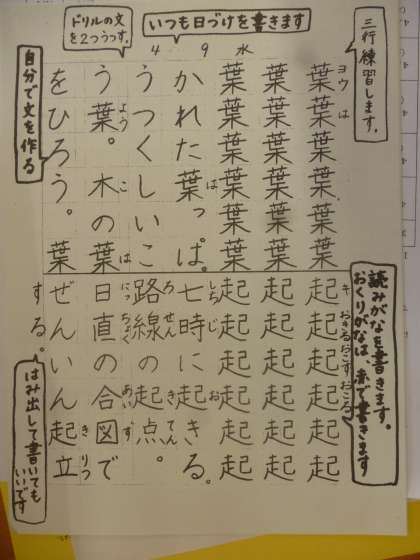 三行練習します。
いつも日づけを書きます
ドリルの文
を2つうつす。
4 9 水
自分で文を作る
ヨウ は
葉葉葉葉葉葉
葉葉葉葉葉葉
葉葉葉葉葉葉
かれた葉っぱ。
は
うつくしいこ
う葉。木の葉
よう こ は
をひろう。葉
読みがなを書きます。
おくりがなは赤で書きます
キ おきる おこす おこる
起起起起起起
起起起起起起
起起起起起起
七時に起きる。
しち じ お
路線の起点。
ろ せん き てん
日直の合図で
にっ ちょく あい ず
ぜんいん起立
き りつ
する。
はみ出して書いても
いいです